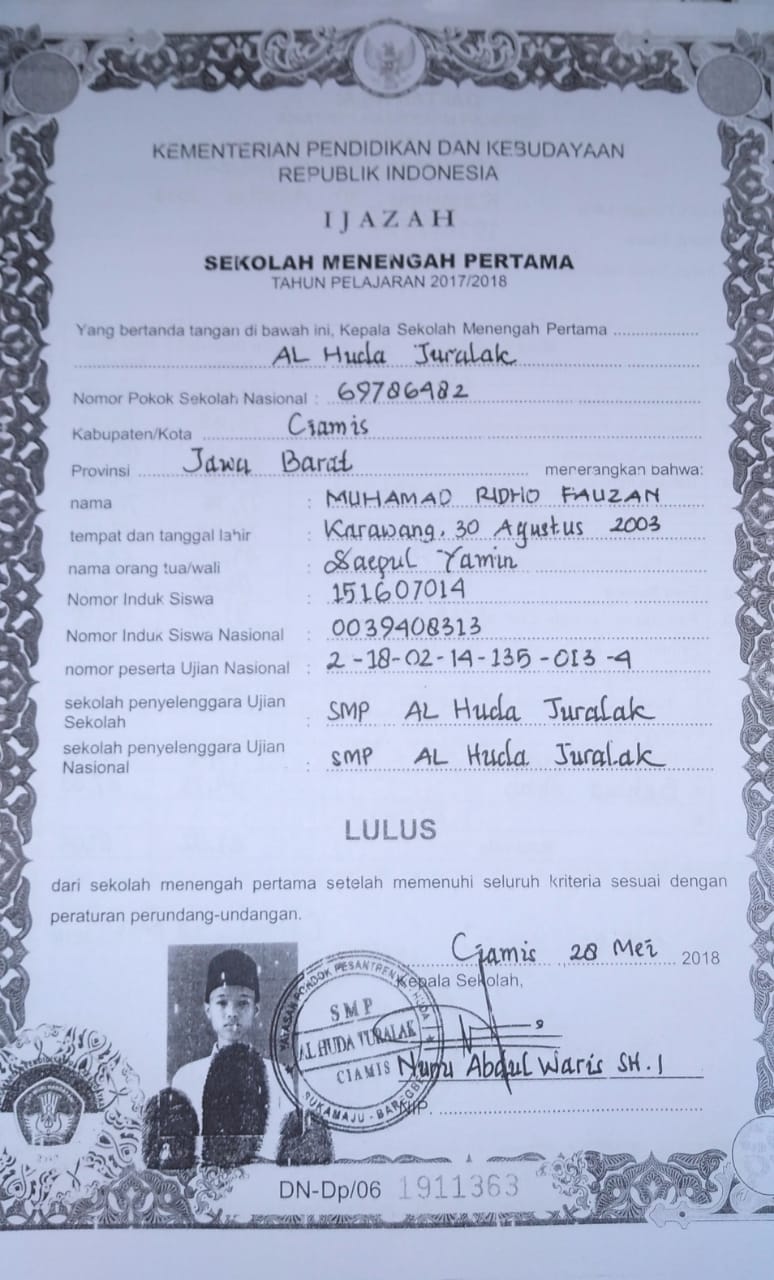 KEMENTERIAN PENDIDIKAN DAN KEBUDAYAAN
REPUBLIK INDONESIA
IJAZAH
SEKOLAH MENENGAH PERTAMA
TAHUN PELAJARAN 2017/2018
Yang bertanda tangan di bawah ini, Kepala Sekolah Menengah Pertama
AL Huda Turalak
Nomor Pokok Sekolah Nasional : 69786482
Kabupaten/Kota Ciamis
Provinsi Jawa Barat menerangkan bahwa:
nama : MUHAMAD RIDHO FAUZAN
tempat dan tanggal lahir : Karawang, 30 Agustus 2003
nama orang tua/wali : Saepul Yamin
Nomor Induk Siswa : 151607014
Nomor Induk Siswa Nasional : 0039408313
nomor peserta Ujian Nasional : 2-18-02-14-135-013-4
sekolah penyelenggara Ujian
Sekolah : SMP AL Huda Turalak
sekolah penyelenggara Ujian
Nasional : SMP AL Huda Turalak
LULUS
dari sekolah menengah pertama setelah memenuhi seluruh kriteria sesuai dengan
peraturan perundang-undangan.
Ciamis, 28 Mei 2018
Kepala Sekolah,
YAYASAN PONDOK PESANTREN HUDA
SMP
AL HUDA TURALAK
CIAMIS
SUKAMAJU - BAREGBEG
Nunu Abdul Waris SH.I
NIP
DN-Dp/06 1911363